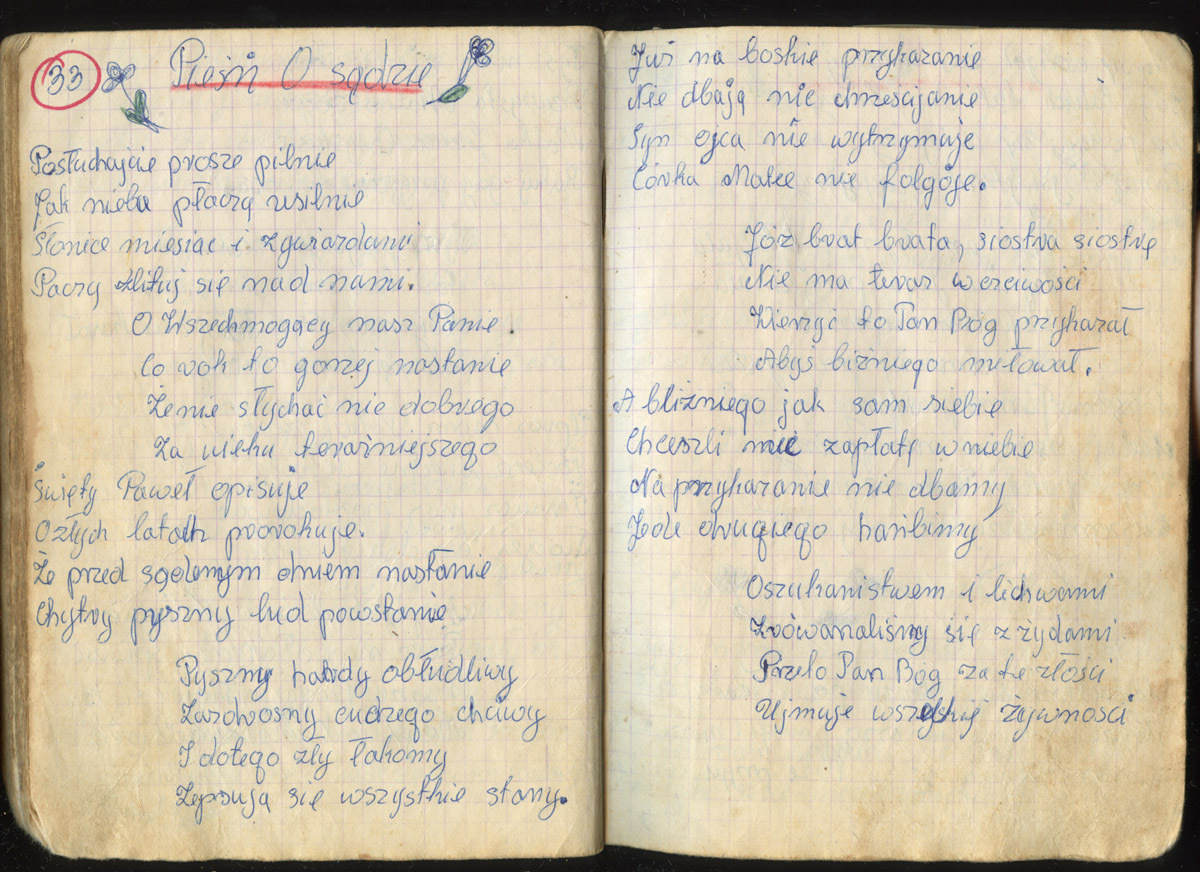 33
Pieśń O sądzie
Posłuchajcie prosze pilnie
Jak nieba płaczą usilnie
Słonice miesiąc i zgwiazdami
Paczą zlituj się nad nami.
O Wszechmogący nasz Panie.
Co rok to gorzej nastanie
Żenie słychać nie dobrego
Za wieku teraźniejszego
Święty Paweł opisuje
Ozłych latach prorokuje.
Że przed sądemym dniem nastanie
Chytry pyszny lud powstanie
Pyszny hardy obłudliwy
Zazdrosny cudzego chciwy
I dotego zły łakomy
Zepsują się wszystkie stany.
Już na boskie przykazanie
Nie dbają nic chrześcijanie
Syn ojca nie wytrzymuje
Córka Matce nie folgóje.
Jóż brat brata, siostra siostrę
Nie ma teraz wczciwości
Wierzyć to Pan Bóg przykazał
Abyś biźniego miłował.
A bliźniego jak sam siebie
Chceszli mieć zapłatę wniebie
Na przykazanie nie dbamy
Jede drugiego hańbimy
Oszukanistwem i lichwami
Zrówanaliśmy się z żydami
Przeto Pan Bóg za te złości
Ujmuje wszelkiej żywności